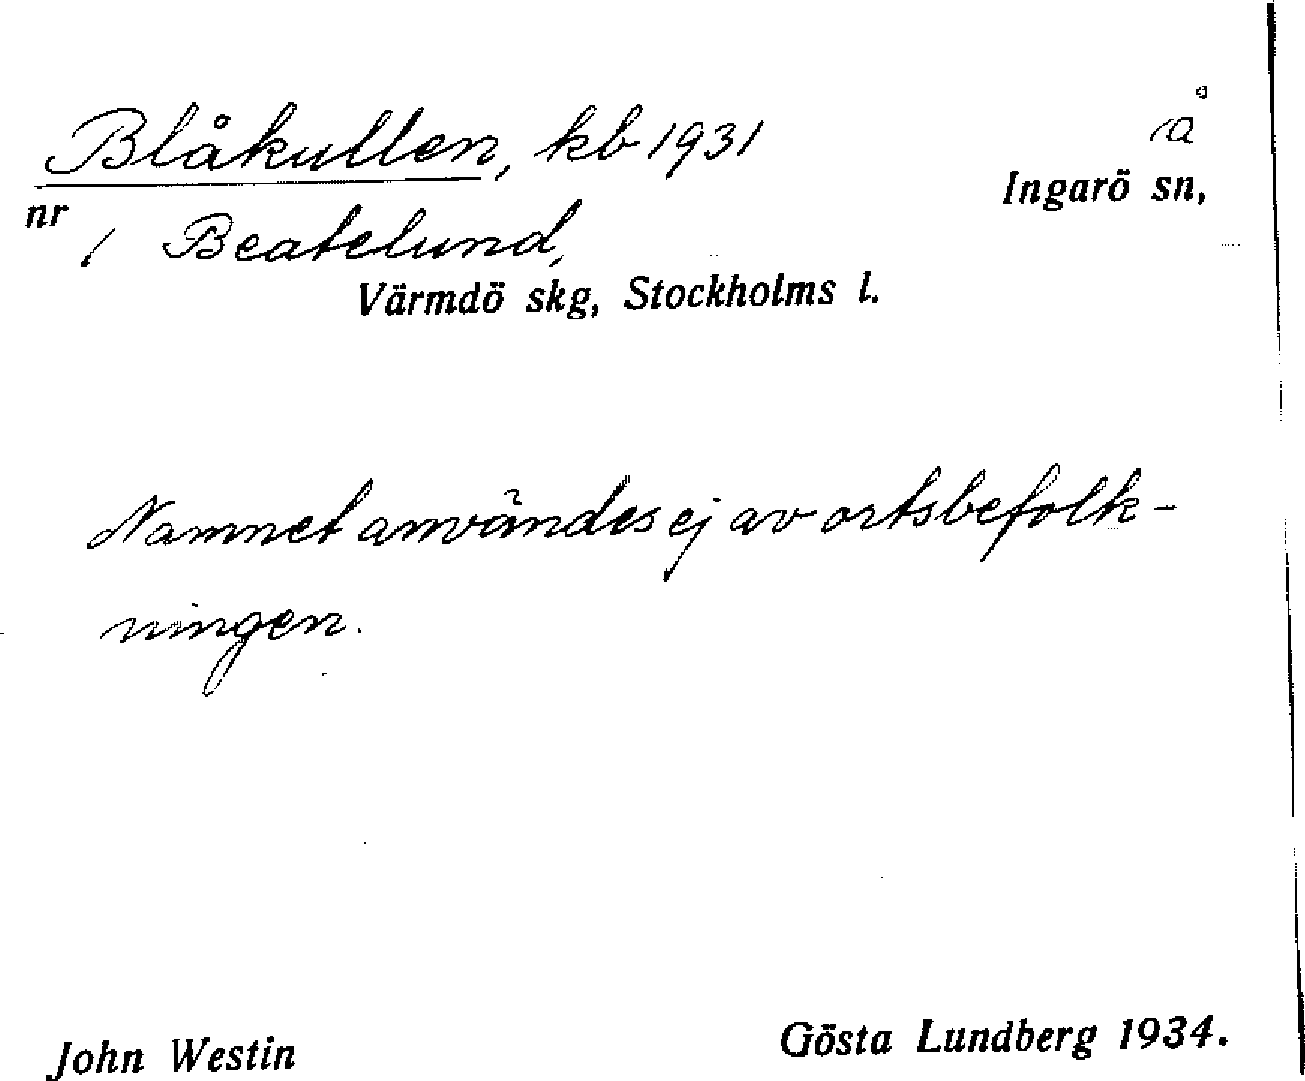 Blåkullen, kb 1931
Ingarö sn,
nr 1 Beatelund,
Värmdö skg, Stockholms l.
Namnet användes ej av ortsbefolk-
ningen.
John Westin
Gösta Lundberg 1934.